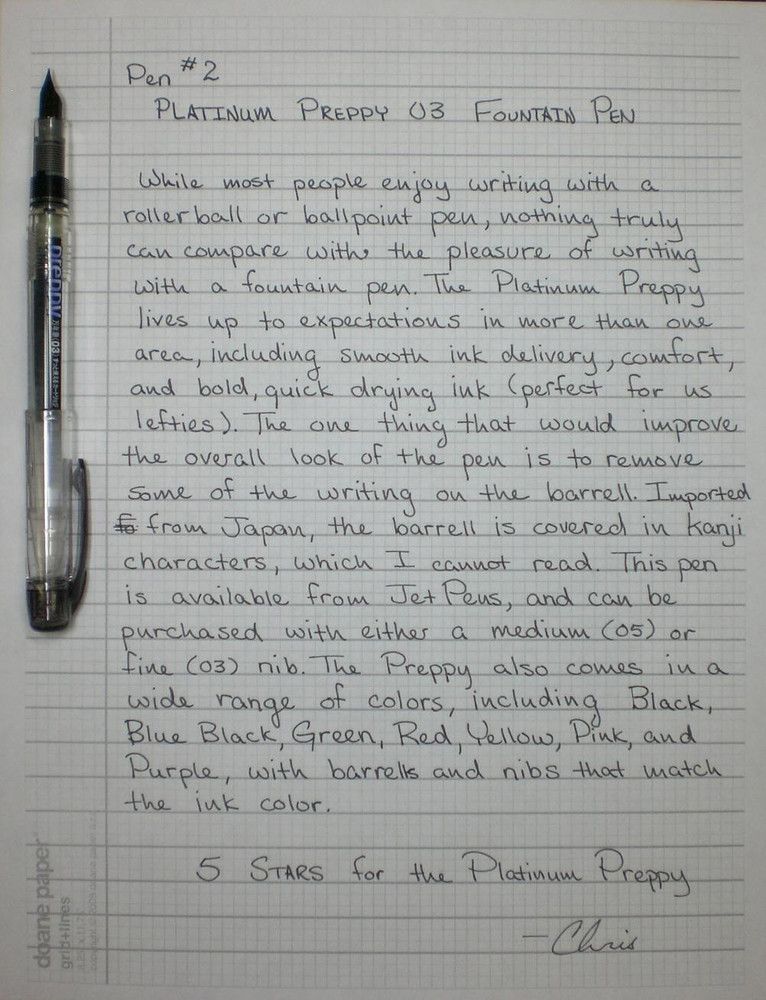 Pen #2
PLATINUM PREPPY 03 FOUNTAIN PEN
While most people enjoy writing with a
rollerball or ballpoint pen, nothing truly
can compare with the pleasure of writing
with a fountain pen. The Platinum Preppy
lives up to expectations in more than one
area, including smooth ink delivery, comfort,
and bold, quick drying ink (perfect for us
lefties). The one thing that would improve
the overall look of the pen is to remove
some of the writing on the barrell. Imported
from Japan, the barrell is covered in Kanji
characters, which I cannot read. This pen
is available from Jet Pens, and can be
purchased with either a medium (05) or
fine (03) nib. The Preppy also comes in a
wide range of colors, including Black,
Blue Black, Green, Red, Yellow, Pink, and
Purple, with barrells and nibs that match
the ink color.
5 STARS for the Platinum Preppy
- Chris
preppy
03
doane paper
grid+lines